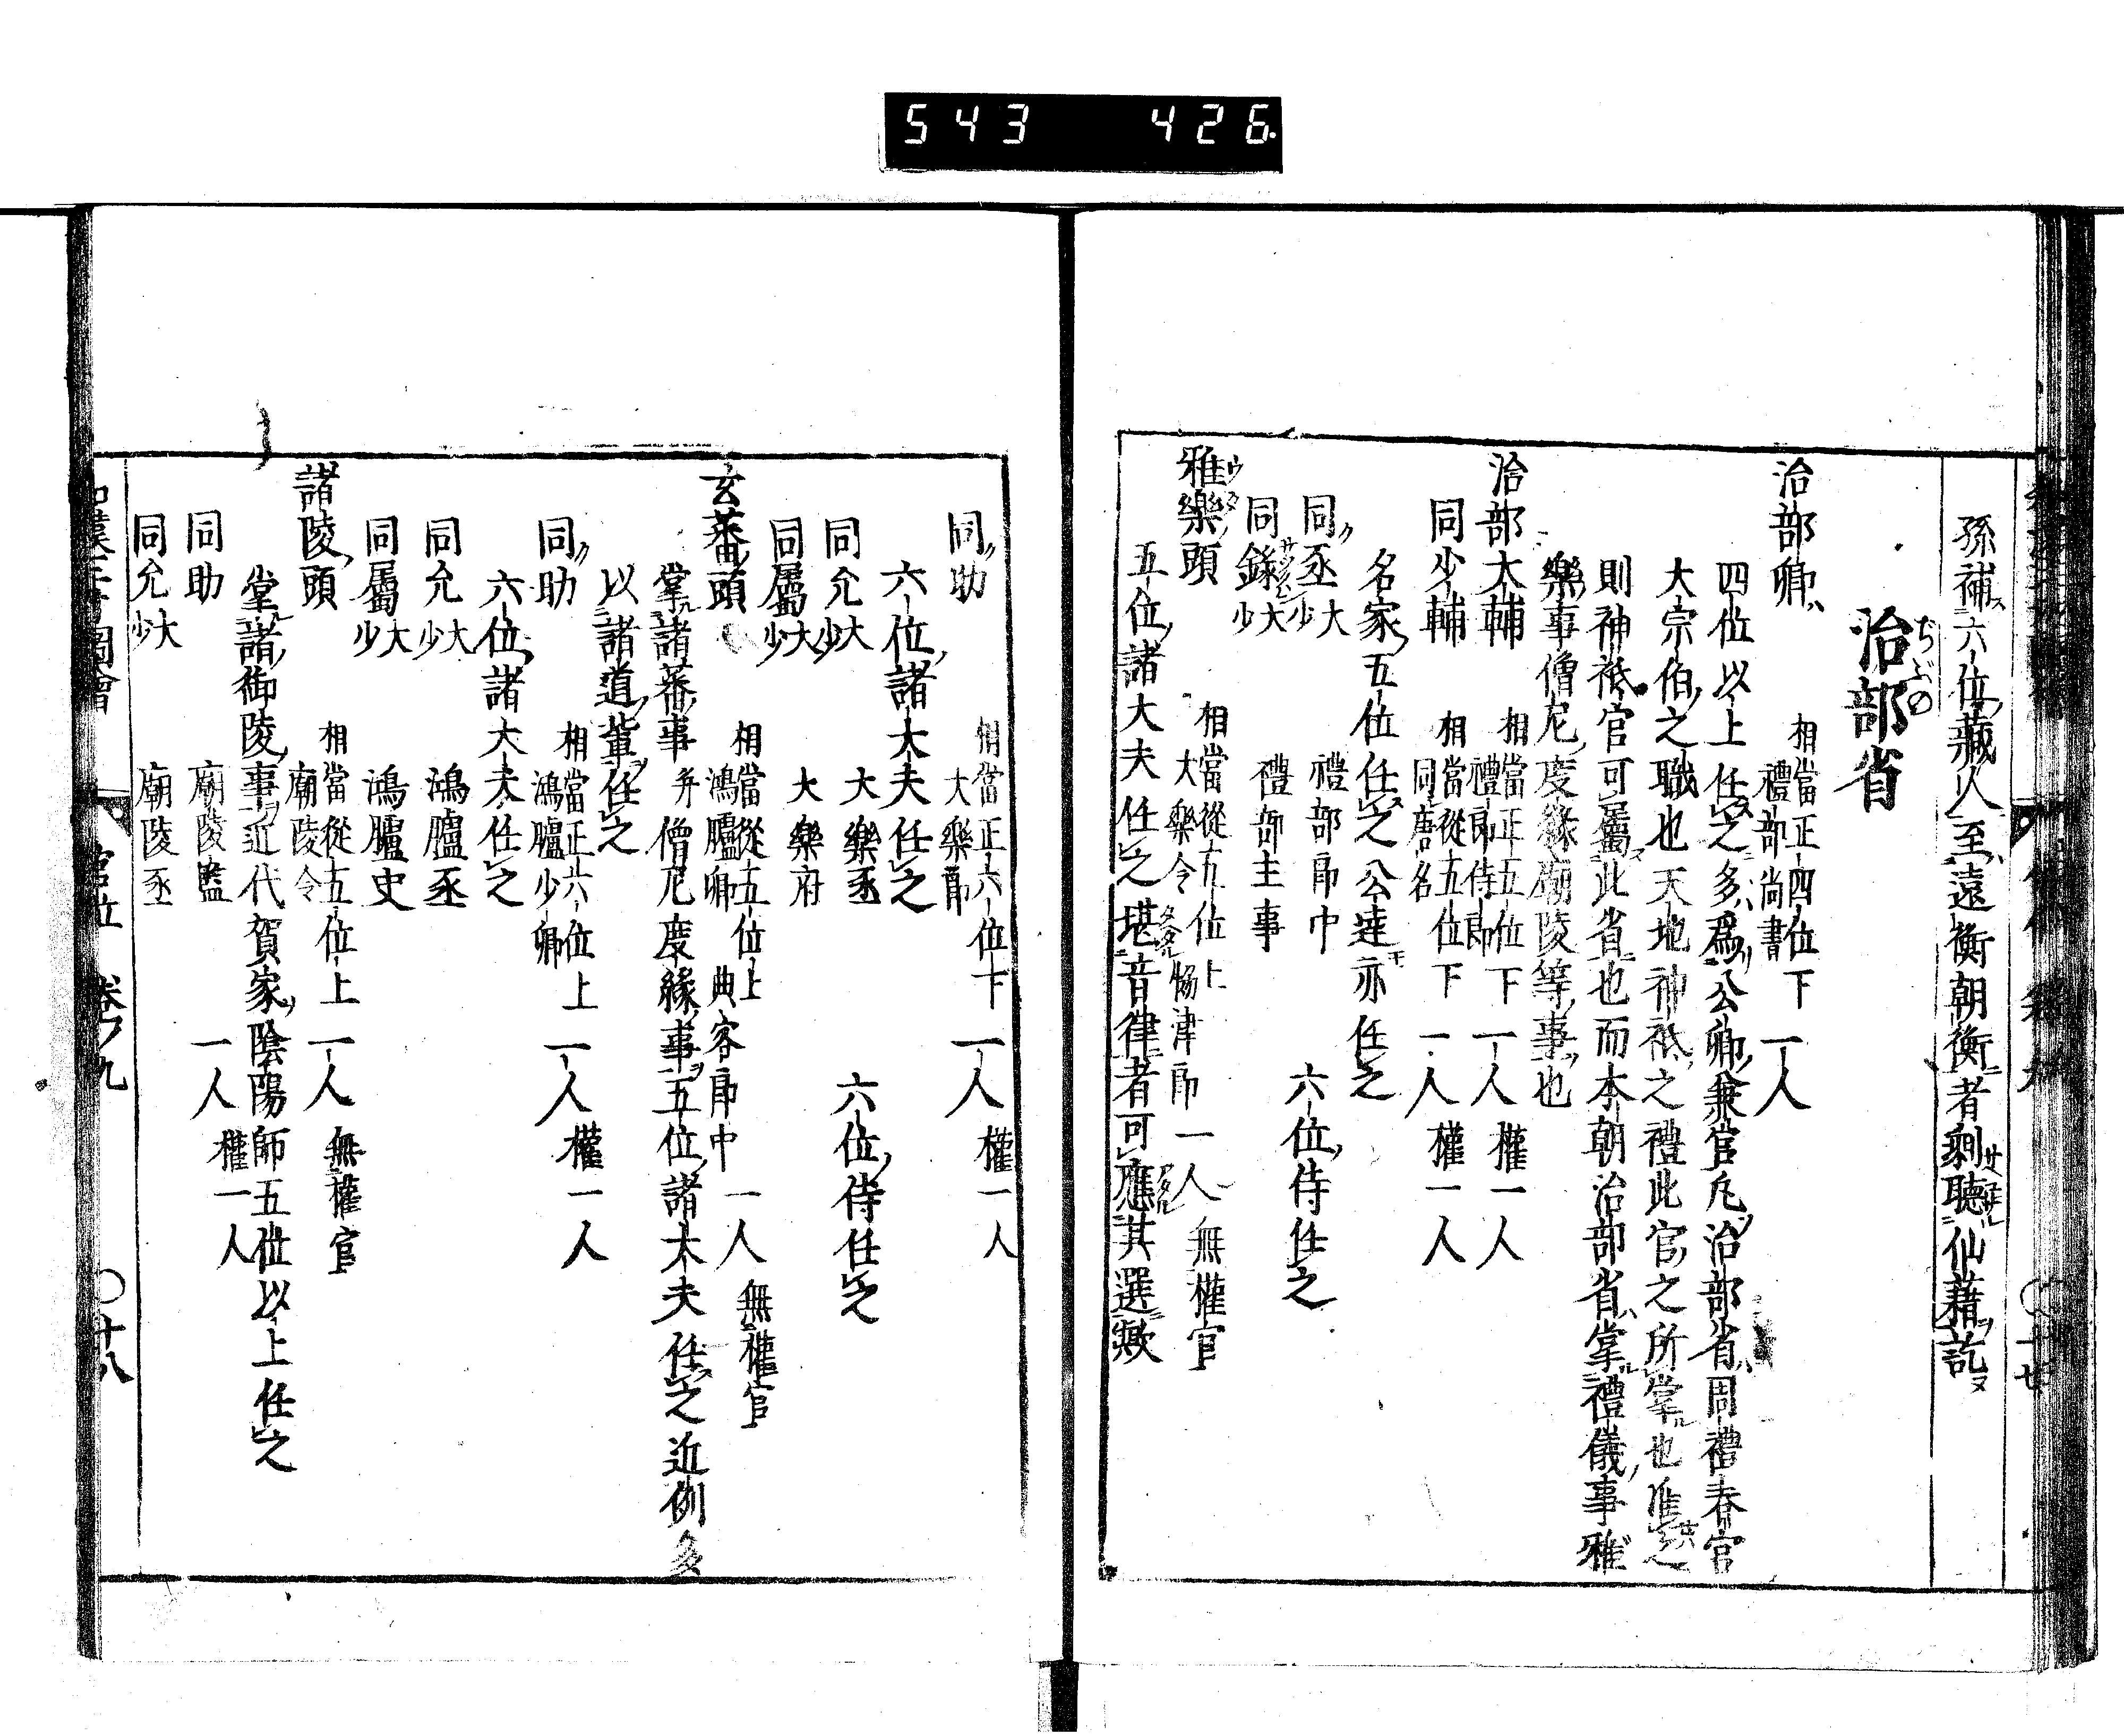 543 426
孫補ス六位ノ藏人ニ至遠衡朝衡ニ者剩聽サヘユルサル仙藉ヲ訖ヌ
治部省 ぢぶの
治部卿 相當正四位下 禮部尚書 一人
四位以上任之多爲公卿兼官凡治部省周禮春官
大宗伯之職也天地神祇之禮此官之所掌也准之
則神祇官可屬此省也而本朝治部省掌禮儀事雅
樂事僧尼度緣廟陵等事也
治部大輔 相當正五位下 禮部侍郎 一人 權一人
同少輔 相當從五位下 同唐名 一人 權一人
名家五位任之公達亦任之
同丞 大少 禮部郎中 六位侍任之
同錄 サクワン 大少 禮部主事
雅樂頭 ウタ 相當從五位上 大樂令 協律郎 一人 無權官
五位諸大夫任之堪音律者可應其選歟
同助 相當正六位下 大樂郎 一人 權一人
六位諸大夫任之
同允 大少 大樂丞 六位侍任之
同屬 大少 大樂府
玄蕃頭 相當從五位上 鴻臚卿 典客郎中 一人 無權官
掌諸蕃事并僧尼度緣事五位諸大夫任之近例多
以諸道輩任之
同助 相當正六位上 鴻臚少卿 一人 權一人
六位諸大夫任之
同允 大少 鴻臚丞
同屬 大少 鴻臚史
諸陵頭 相當從五位上 廟陵令 一人 無權官
掌諸御陵事近代賀家陰陽師五位以上任之
同助 廟陵監 一人 權一人
同允 大少 廟陵丞
官位 卷ノ九 〇十八